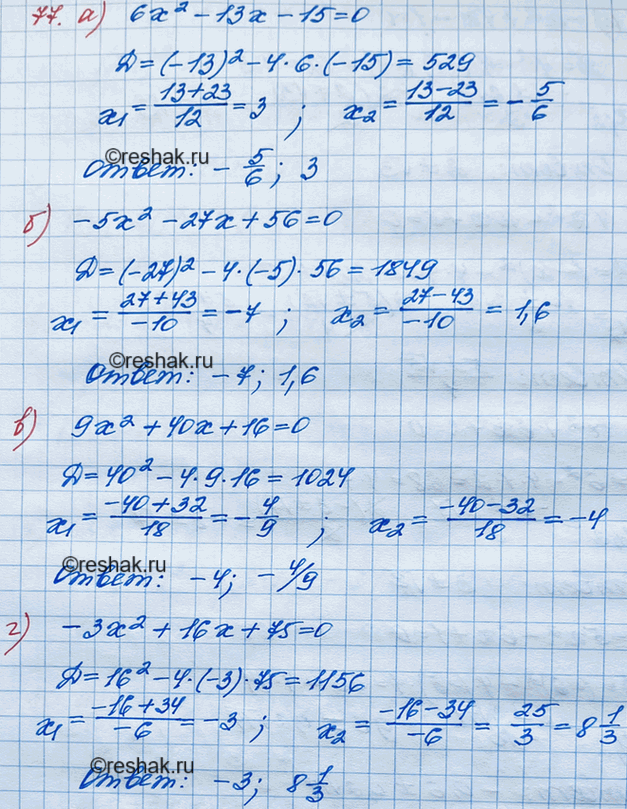 77. а) 6x² - 13x - 15 = 0
Д = (-13)² - 4·6·(-15) = 529
x₁ = (13+23)/12 = 3 ; x₂ = (13-23)/12 = -5/6
©reshak.ru
Ответ: -5/6; 3
б) -5x² - 27x + 56 = 0
Д = (-27)² - 4·(-5)·56 = 1849
x₁ = (27+43)/-10 = -7 ; x₂ = (27-43)/-10 = 1,6
©reshak.ru
Ответ: -7; 1,6
в) 9x² + 40x + 16 = 0
Д = 40² - 4·9·16 = 1024
x₁ = (-40+32)/18 = -4/9 ; x₂ = (-40-32)/18 = -4
©reshak.ru
Ответ: -4; -4/9
г) -3x² + 16x + 75 = 0
Д = 16² - 4·(-3)·75 = 1156
x₁ = (-16+34)/-6 = -3 ; x₂ = (-16-34)/-6 = 25/3 = 8 1/3
©reshak.ru
Ответ: -3; 8 1/3